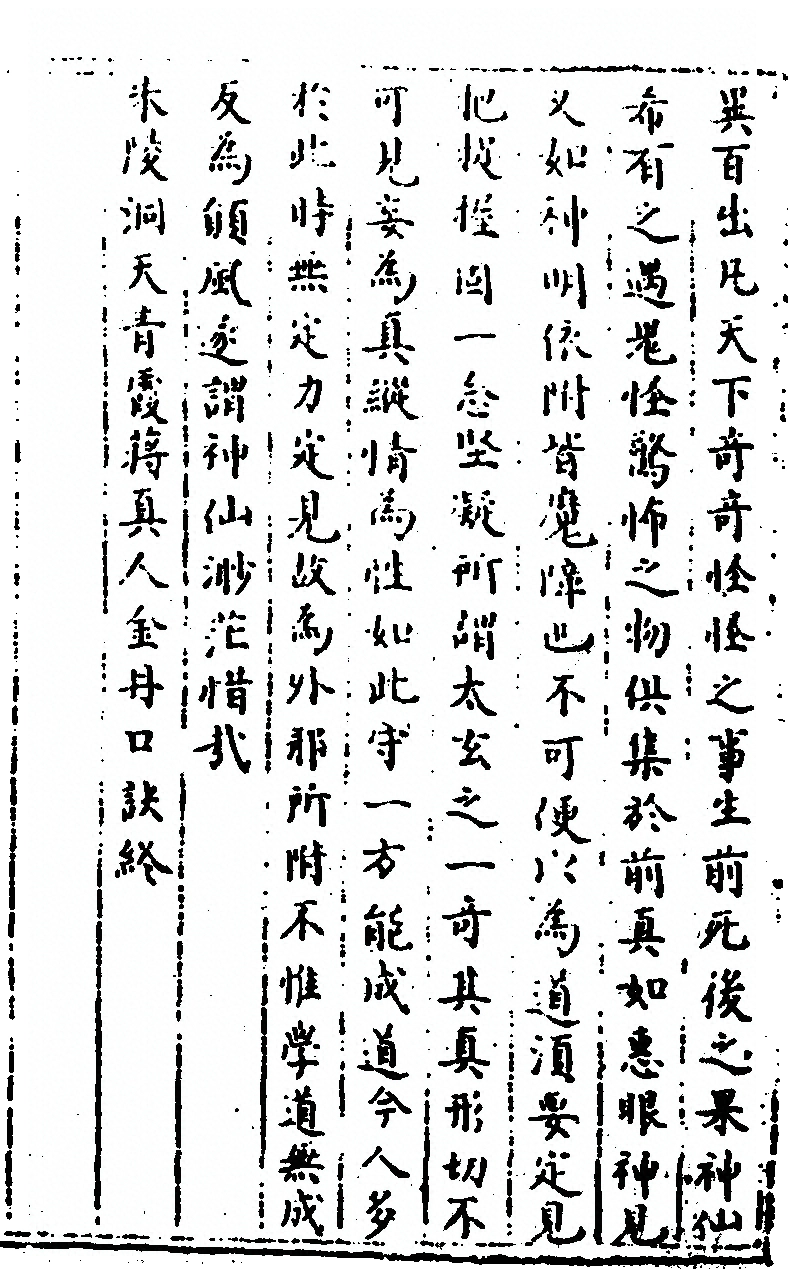 異百出凡天下奇奇怪怪之事生前死後之果神仙
希有之遇鬼怪驚怖之物俱集於前真如惠眼神見
又如神明依附皆魔障也不可便以為道須要定見
把捉捏固一念堅凝所謂太玄之一奇其真形切不
可見妄為真縱情為性如此守一方能成道今人多
於此時無定力定見故為外邪所附不惟學道無成
反為顛風遂謂神仙渺茫惜哉
朱陵洞天青霞蔣真人金丹口訣終